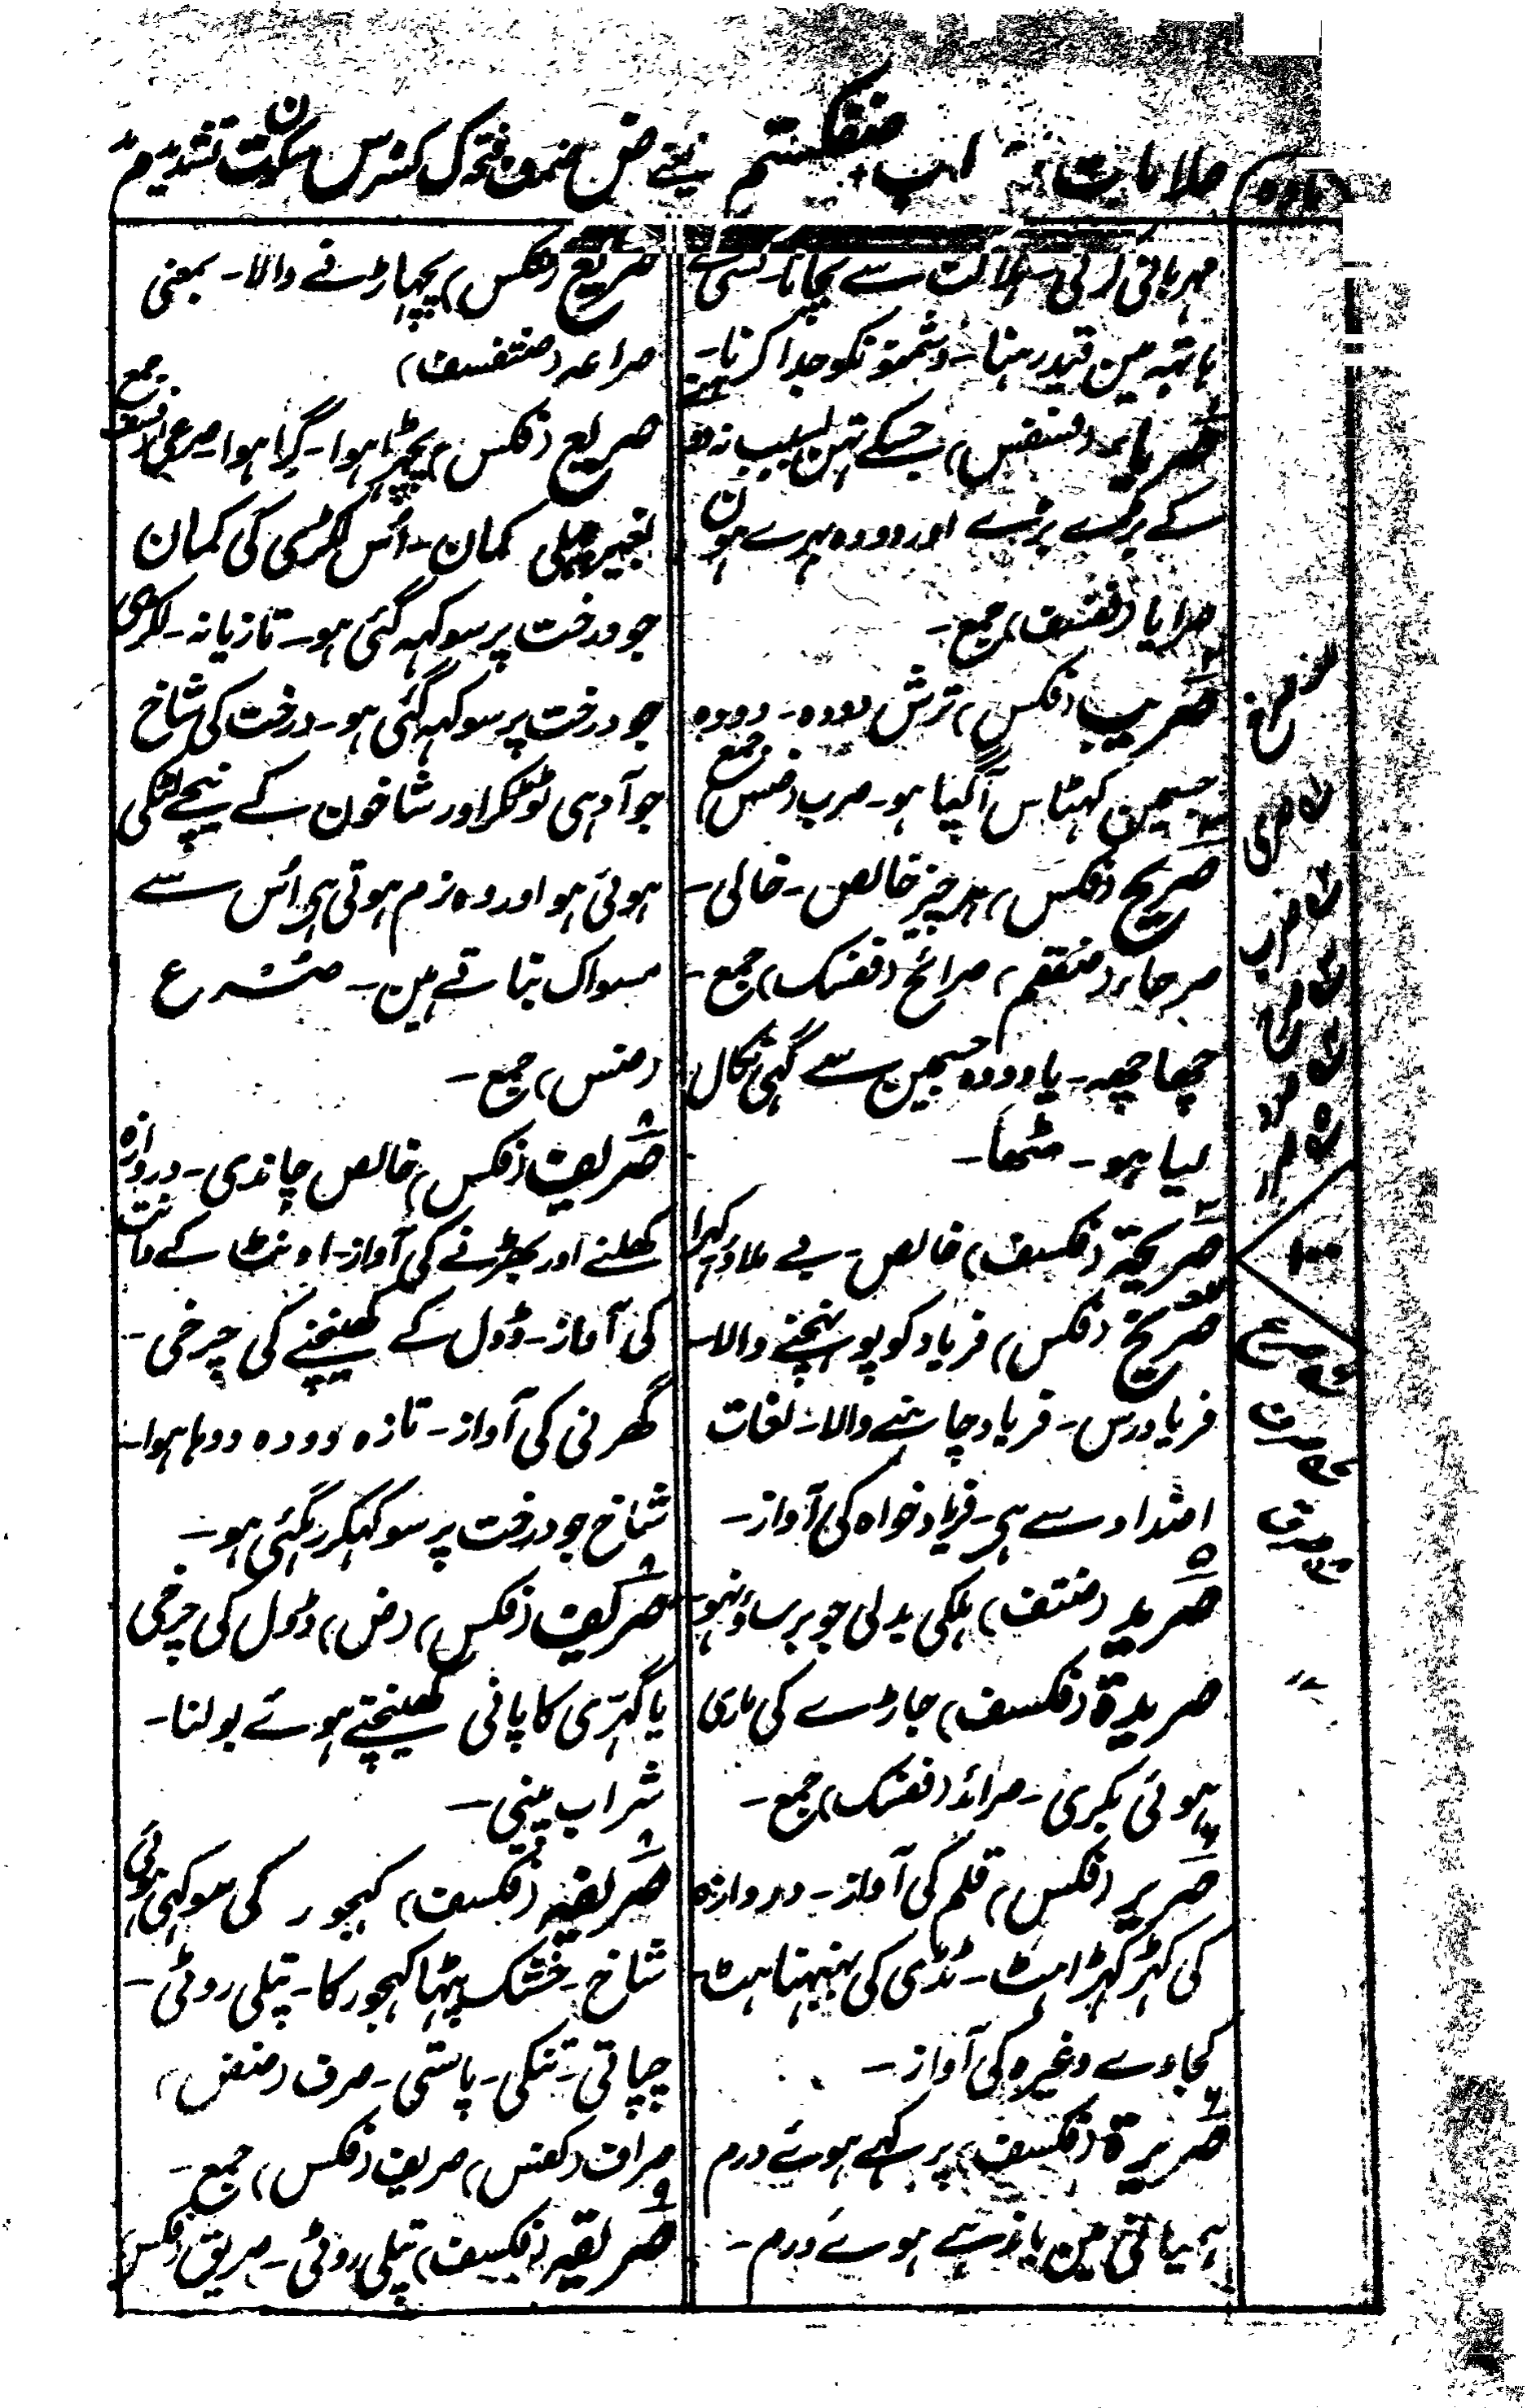 مادہ علامات اب ضفکستم یعنے ض ضمہ ف فتحہ ک کسرہ س سکون ت تشدید م مد
مہربانی کرنی۔ ہلاکت سے بچانا۔ کسی کے
ہاتہہ مین قید رہنا۔ دشمنونکو جدا کرنا۔
صریاء جسکے تہن بسبب نہ دو
کے بڑے بڑے اور دودہ بہرے ہون
صرایا جمع۔
صریب (فکس) ترش دودہ۔ دودہ
جسمین کہٹاس آگیا ہو۔ صرب (ضس) جمع
صریح (فکس) ہر چیز خالص۔ خالی۔
صرحاء (ضفم) صرائح جمع۔
چھاچھہ۔ یا دودہ جسمین سے گہی نکال
لیا ہو۔ مٹھا۔
صریحة (فکسف) خالص۔ بے ملاو کہرا
صریخ (فکس) فریاد کو پوہنچنے والا۔
فریادرس۔ فریاد چاہنے والا۔ لغات
اضداد سے ہی۔ فریاد خواہ کی آواز۔
صرید ہلکی بدلی جو برساؤ نہو۔
صریدة (فکسف) جاڑے کی ماری
ہوئی بکری۔ صرائد جمع۔
صریر (فکس) قلم کی آواز۔ دروازہ
کی کہڑکہڑاہٹ۔ ٹڈی کی بہنبہناہٹ
کجاوے وغیرہ کی آواز۔
صریرة (فکسف) پرکہے ہوئے درم
ہمیانی مین باندہے ہوے درم۔
صریع (فکس) پچہاڑنے والا۔ بمعنی
صراعہ
صریع (فکس) پچہڑا ہوا۔ گرا ہوا۔ صرعی جمع
بغیر چلی کمان۔ اُس لکڑی کی کمان
جو درخت پر سوکہہ گئی ہو۔ تازیانہ۔ لکڑی
جو درخت پر سوکہہ گئی ہو۔ درخت کی شاخ
جو آدہی ٹوٹکر اور شاخون کے نیچے لٹکی
ہوئی ہو اور وہ نرم ہوتی ہی اُس سے
مسواک بناتے ہین۔ صُرُع
(ضس) جمع۔
صریف (فکس) خالص چاندی۔ دروازہ
کھلنے اور بھڑنے کی آواز۔ اونٹ کے دانت
کی آواز۔ ڈول کے کھینچنے کی چرخی۔
گھرنی کی آواز۔ تازہ دودہ دوہا ہوا۔
شاخ جو درخت پر سوکہکر رہگئی ہو۔
صریف (فکس) (ض) ڈول کی چرخی
یا گہڑی کا پانی کھینچتے ہوئے بولنا۔
شراب پینی۔
صریفہ (فکسف) کہجور کی سوکہی ہوئی
شاخ۔ خشک پٹھا کہجور کا۔ پتلی روٹی۔
چپاتی۔ تنکی۔ پاستی۔ صرف
صراف (کفس) صریف (فکس) جمع۔
صریقہ (فکسف) پتلی روٹی۔ صریق (فکس)
صرع
صرف
صرق